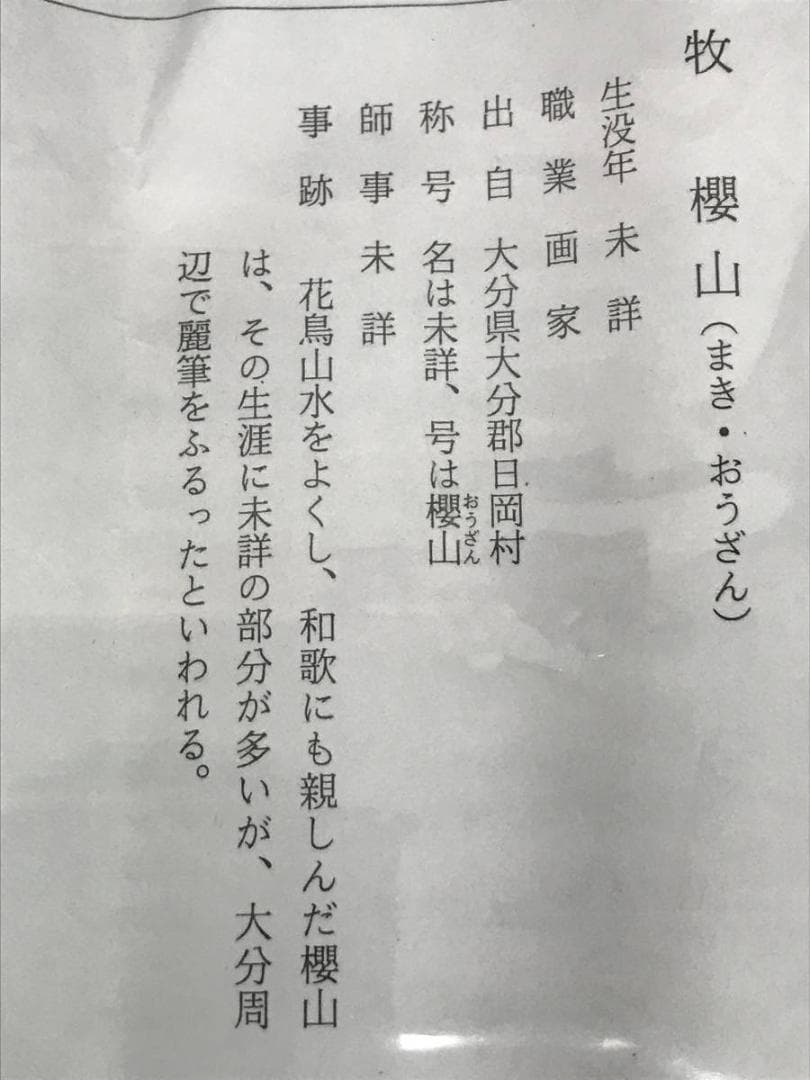 牧 櫻山（まき・おうざん）
生没年 未詳
職業 画家
出自 大分県大分郡日岡村
称号 名は未詳、号は櫻山
おうざん
師事 未詳
事跡 花鳥山水をよくし、和歌にも親しんだ櫻山
は、その生涯に未詳の部分が多いが、大分周
辺で麗筆をふるったといわれる。